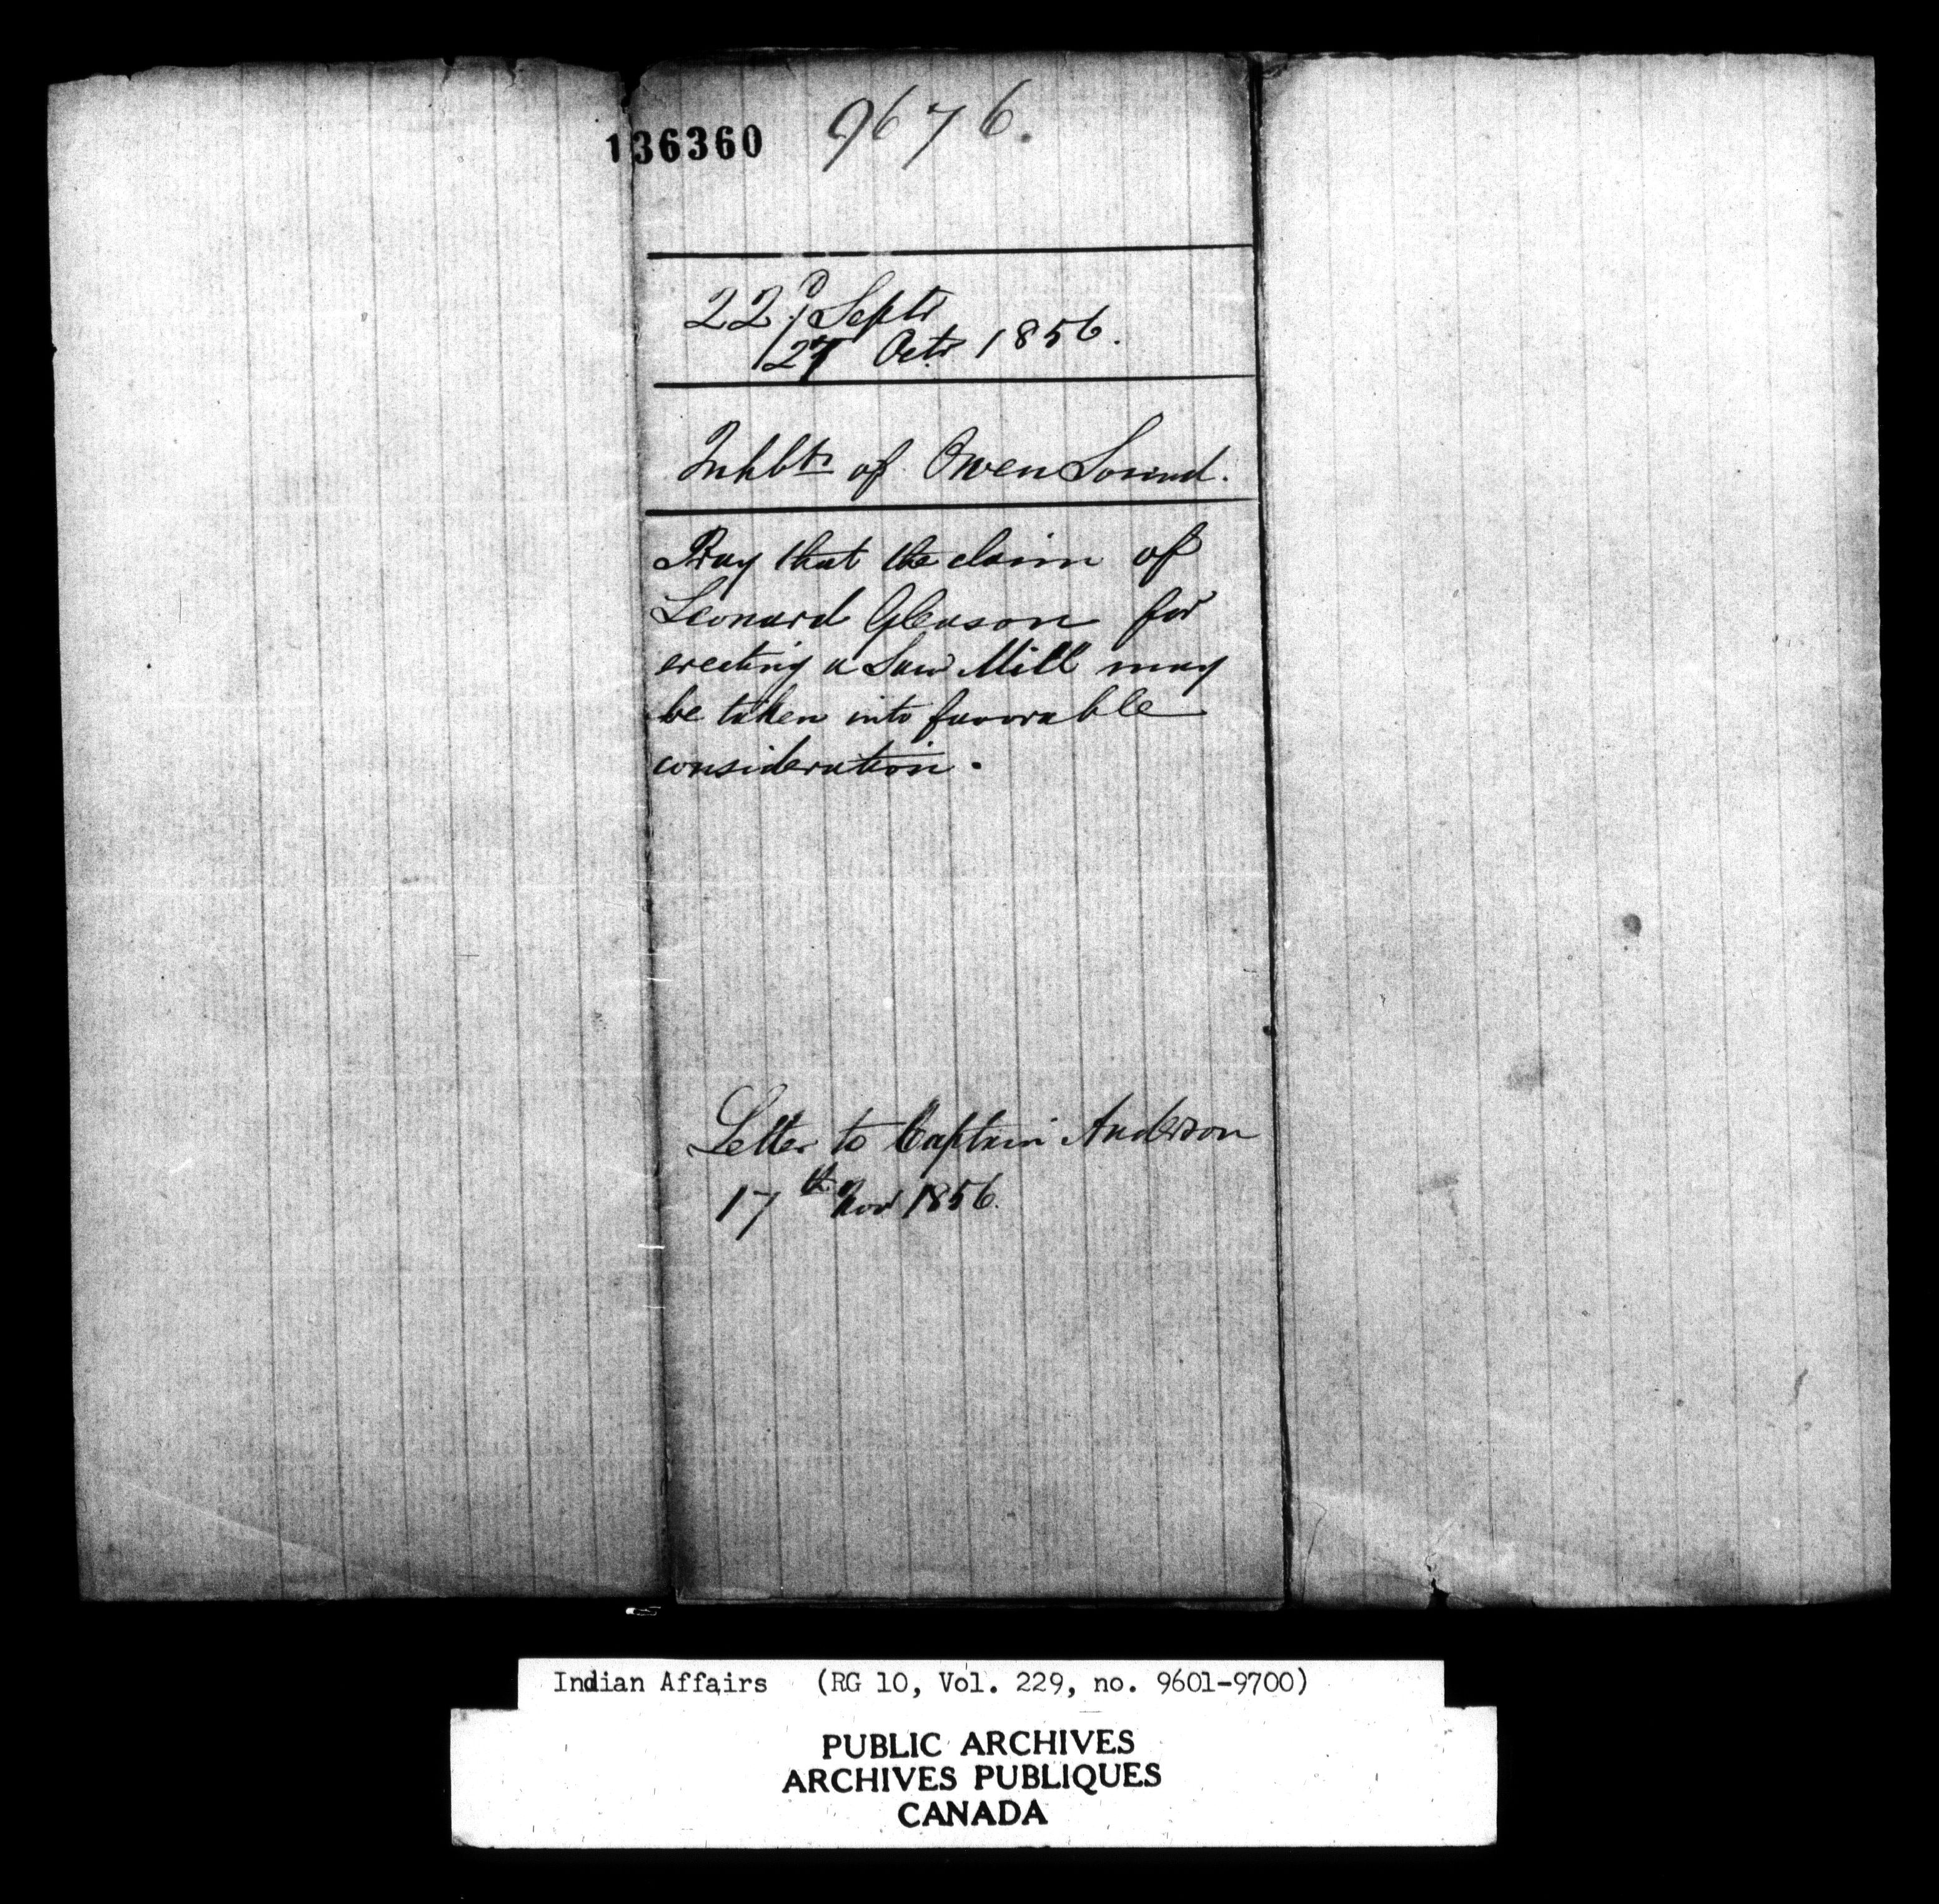 136360 9676.
22d Septr
27 Octr 1856.
Inhbts of Owen Sound.
Pray that the claim of
Leonard Gleason for
erecting a Saw Mill may
be taken into favorable
consideration.
Letter to Captain Anderson
17th Novr 1856.
Indian Affairs (RG 10, Vol. 229, no. 9601-9700)
PUBLIC ARCHIVES
ARCHIVES PUBLIQUES
CANADA